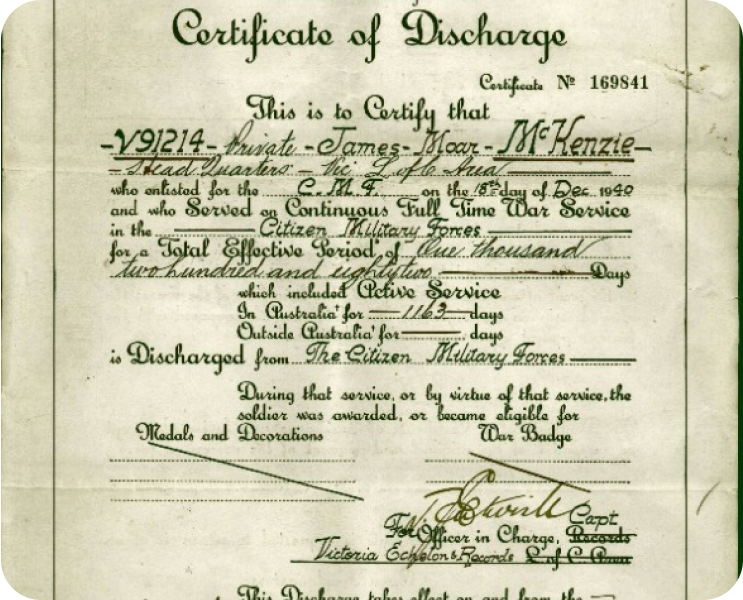 Certificate of Discharge
Certificate No 169841
This is to Certify that
-V91214- Private - James - Moar - McKenzie-
- Head Quarters - Vic L of C Area
who enlisted for the C.M.F. on the 18th day of Dec 1940
and who Served on Continuous Full Time War Service
in the Citizen Military Forces
for a Total Effective Period of One thousand
two hundred and eighty two Days
which included Active Service
In Australia for 1163 days
Outside Australia for days
is Discharged from The Citizen Military Forces
During that service, or by virtue of that service, the
soldier was awarded, or became eligible for
Medals and Decorations War Badge
Capt
For Officer in Charge, Records
Victoria Echelon & Records L of C Area
This Discharge takes effect on and from the